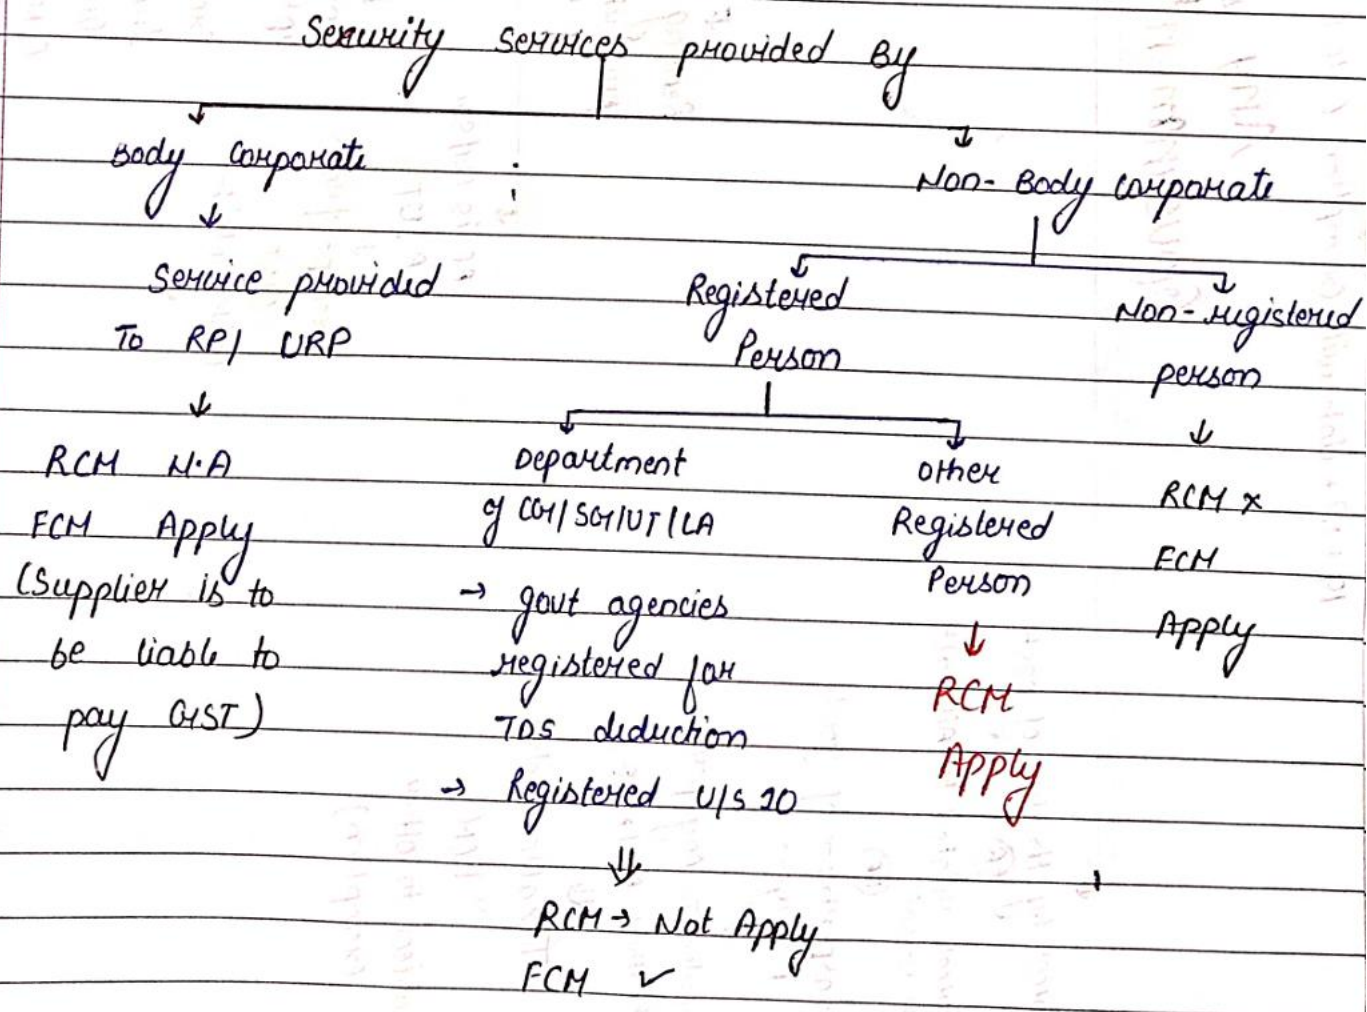 Security services provided By
Body Corporate
Non-Body corporate
Service provided
To RP/ URP
RCM N.A
FCM Apply
(Supplier is to
be liable to
pay GST)
Registered
Person
Department
of CG/SG/UT/LA
→ govt agencies
registered for
TDS deduction
→ Registered U/S 10
RCM → Not Apply
FCM ✓
other
Registered
Person
RCM
Apply
Non-registered
person
RCM x
FCM
Apply